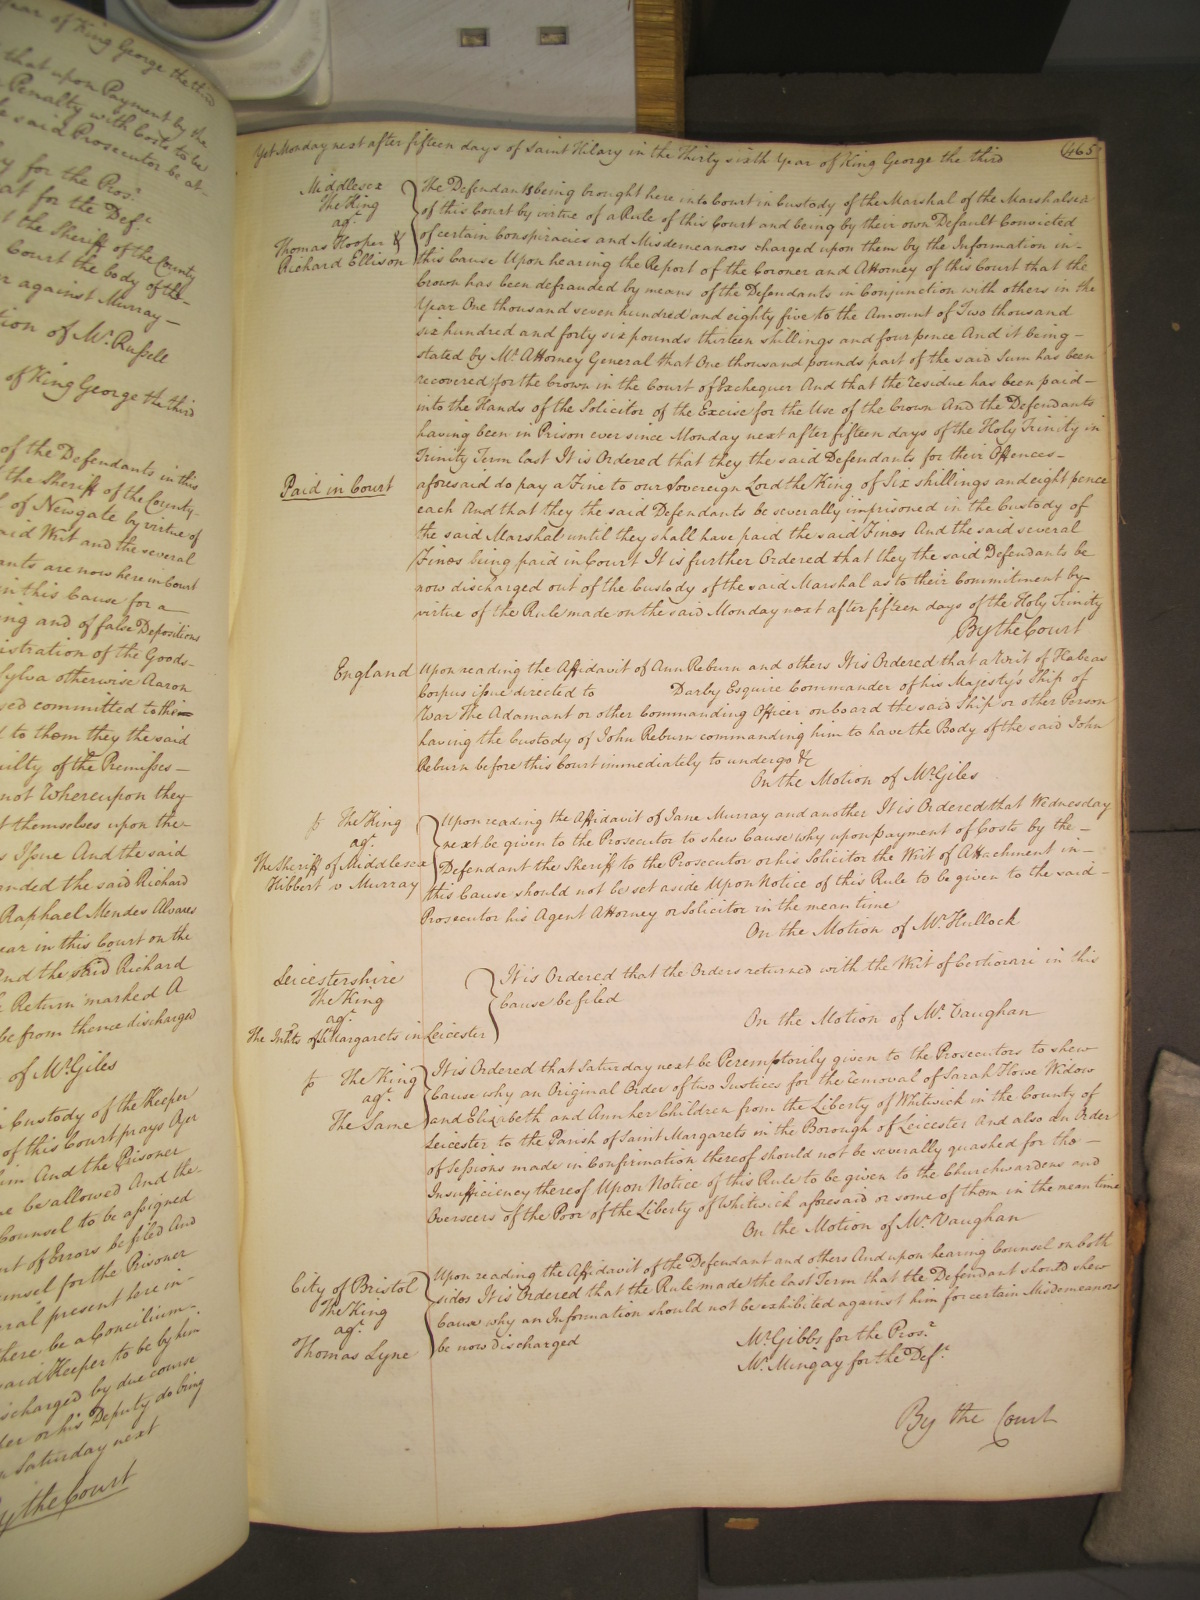 year of King George the third
that upon Payment by the
Penalty with Costs to be
said Prosecutor be at
for the Pros.r
at for the Def.t
the Sheriff of the County
Court the body of the
against Murray
tion of Mr. Russell
of King George the third
of the Defendants in this
the Sheriff of the County
of Newgate by virtue of
said Writ and the several
ants are now here in Court
in this Cause for a
ing and of false Depositions
istration of the Goods
Sylva otherwise Aaron
sed committed to him
to them they the said
uilty of the Premisses
not Whereupon they
themselves upon the
Issue And the said
anded the said Richard
Raphael Mendes Alvares
ear in this Court on the
And the said Richard
Return marked A
be from thence discharged
of Mr. Giles
Custody of the Keeper
of this Court prays Oyer
him And the Prisoner
be allowed And the
Counsel to be assigned
of Errors be filed And
unsel for the Prisoner
ral present here in
there be a Concilium
said Keeper to be by him
scharged by due course
or his Deputy do bring
Saturday next
By the Court
Yet Monday next after fifteen days of Saint Hilary in the Thirty sixth Year of King George the third
465
Middlesex
The King
ag.t
Thomas Hooper &
Richard Ellison
The Defendants being brought here into Court in Custody of the Marshal of the Marshalsea
of this Court by virtue of a Rule of this Court and being by their own Default Convicted
of certain Conspiracies and Misdemeanors charged upon them by the Information in
this Cause Upon hearing the Report of the Coroner and Attorney of this Court that the
Crown has been defrauded by means of the Defendants in Conjunction with others in the
Year One thousand seven hundred and eighty five to the Amount of Two thousand
six hundred and forty six pounds thirteen shillings and four pence And it being
stated by Mr. Attorney General that One thousand pounds part of the said Sum has been
recovered for the Crown in the Court of Exchequer And that the residue has been paid
into the Hands of the Solicitor of the Excise for the Use of the Crown And the Defendants
having been in Prison ever since Monday next after fifteen days of the Holy Trinity in
Trinity Term last It is Ordered that they the said Defendants for their Offences
Paid in Court
aforesaid do pay a Fine to our Sovereign Lord the King of Six shillings and eight pence
each And that they the said Defendants be severally imprisoned in the Custody of
the said Marshal until they shall have paid the said Fines And the said several
Fines being paid in Court It is further Ordered that they the said Defendants be
now discharged out of the Custody of the said Marshal as to their Commitment by
virtue of the Rule made on the said Monday next after fifteen days of the Holy Trinity
By the Court
England
Upon reading the Affidavit of Ann Reburn and others It is Ordered that a Writ of Habeas
Corpus issue directed to Darby Esquire Commander of his Majesty's Ship of
War The Adamant or other Commanding Officer on board the said Ship or other Person
having the Custody of John Reburn commanding him to have the Body of the said John
Reburn before this Court immediately to undergo &c
On the Motion of Mr. Giles
The King
ag.t
The Sheriff of Middlesex
Hibbert v Murray
Upon reading the Affidavit of Jane Murray and another It is Ordered that Wednesday
next be given to the Prosecutor to shew Cause why upon payment of Costs by the
Defendant the Sheriff to the Prosecutor or his Solicitor the Writ of Attachment in
this Cause should not be set aside Upon Notice of this Rule to be given to the said
Prosecutor his Agent Attorney or Solicitor in the mean time
On the Motion of Mr. Hullock
Leicestershire
The King
ag.t
The Inh.ts of St. Margarets in Leicester
It is Ordered that the Orders returned with the Writ of Certiorari in this
Cause be filed
On the Motion of Mr. Vaughan
The King
ag.t
The Same
It is Ordered that Saturday next be Peremptorily given to the Prosecutors to shew
Cause why an Original Order of two Justices for the removal of Sarah Howe Widow
and Elizabeth and Ann her Children from the Liberty of Whitwick in the County of
Leicester to the Parish of Saint Margarets in the Borough of Leicester And also an Order
of Sessions made in Confirmation thereof should not be severally quashed for the
Insufficiency thereof Upon Notice of this Rule to be given to the Churchwardens and
Overseers of the Poor of the Liberty of Whitwick aforesaid or some of them in the mean time
On the Motion of Mr. Vaughan
City of Bristol
The King
ag.t
Thomas Lyne
Upon reading the Affidavit of the Defendant and others And upon hearing Counsel on both
sides It is Ordered that the Rule made the last Term that the Defendant should shew
Cause why an Information should not be exhibited against him for certain Misdemeanors
be now discharged
Mr. Gibbs for the Pros.r
Mr. Mingay for the Def.t
By the Court